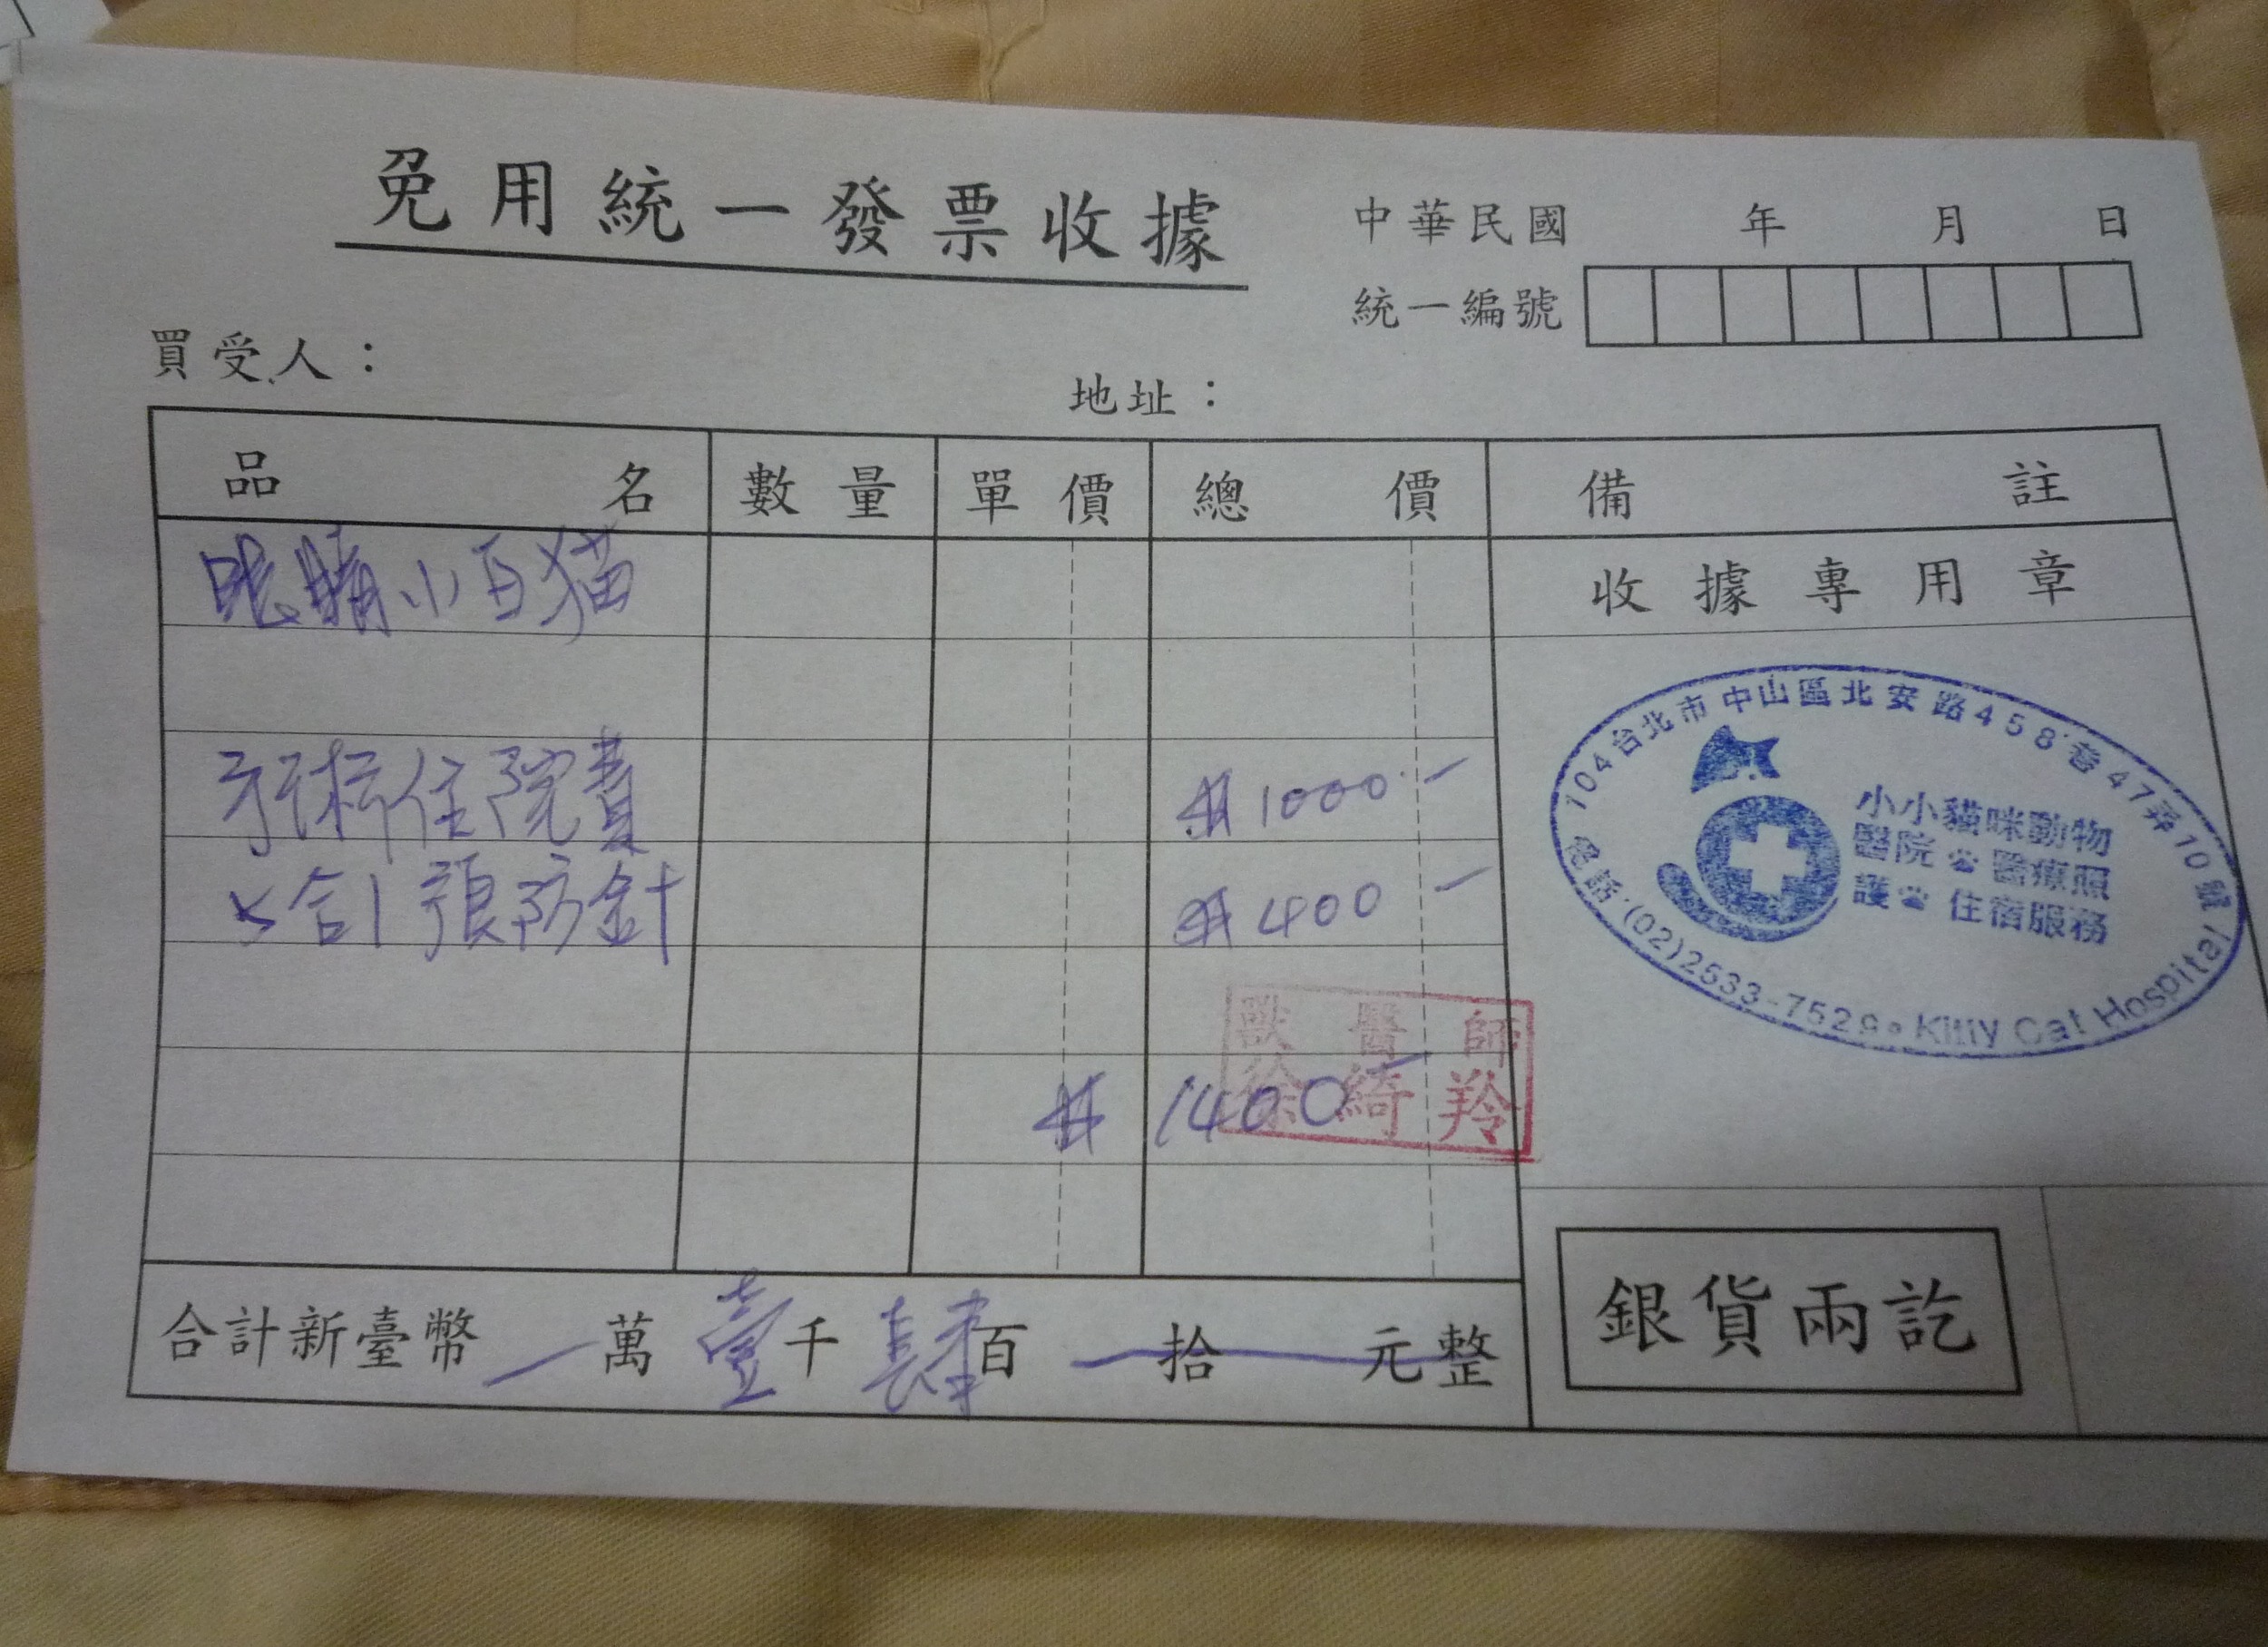 免用統一發票收據
中華民國 年 月 日
統一編號
買受人：
地址：
品名 數量 單價 總價 備註
眼睛小百猫
收據專用章
牙科住院費 $1000.-
5合1預防針 $400-
$1400-
獸醫師
徐綺羚
104台北市中山區北安路458巷47弄10號
小小貓咪動物
醫院 醫療照
護 住宿服務
電話:(02)2533-7529 Kitty Cat Hospital
合計新臺幣 萬壹千肆百 拾 元整
銀貨兩訖